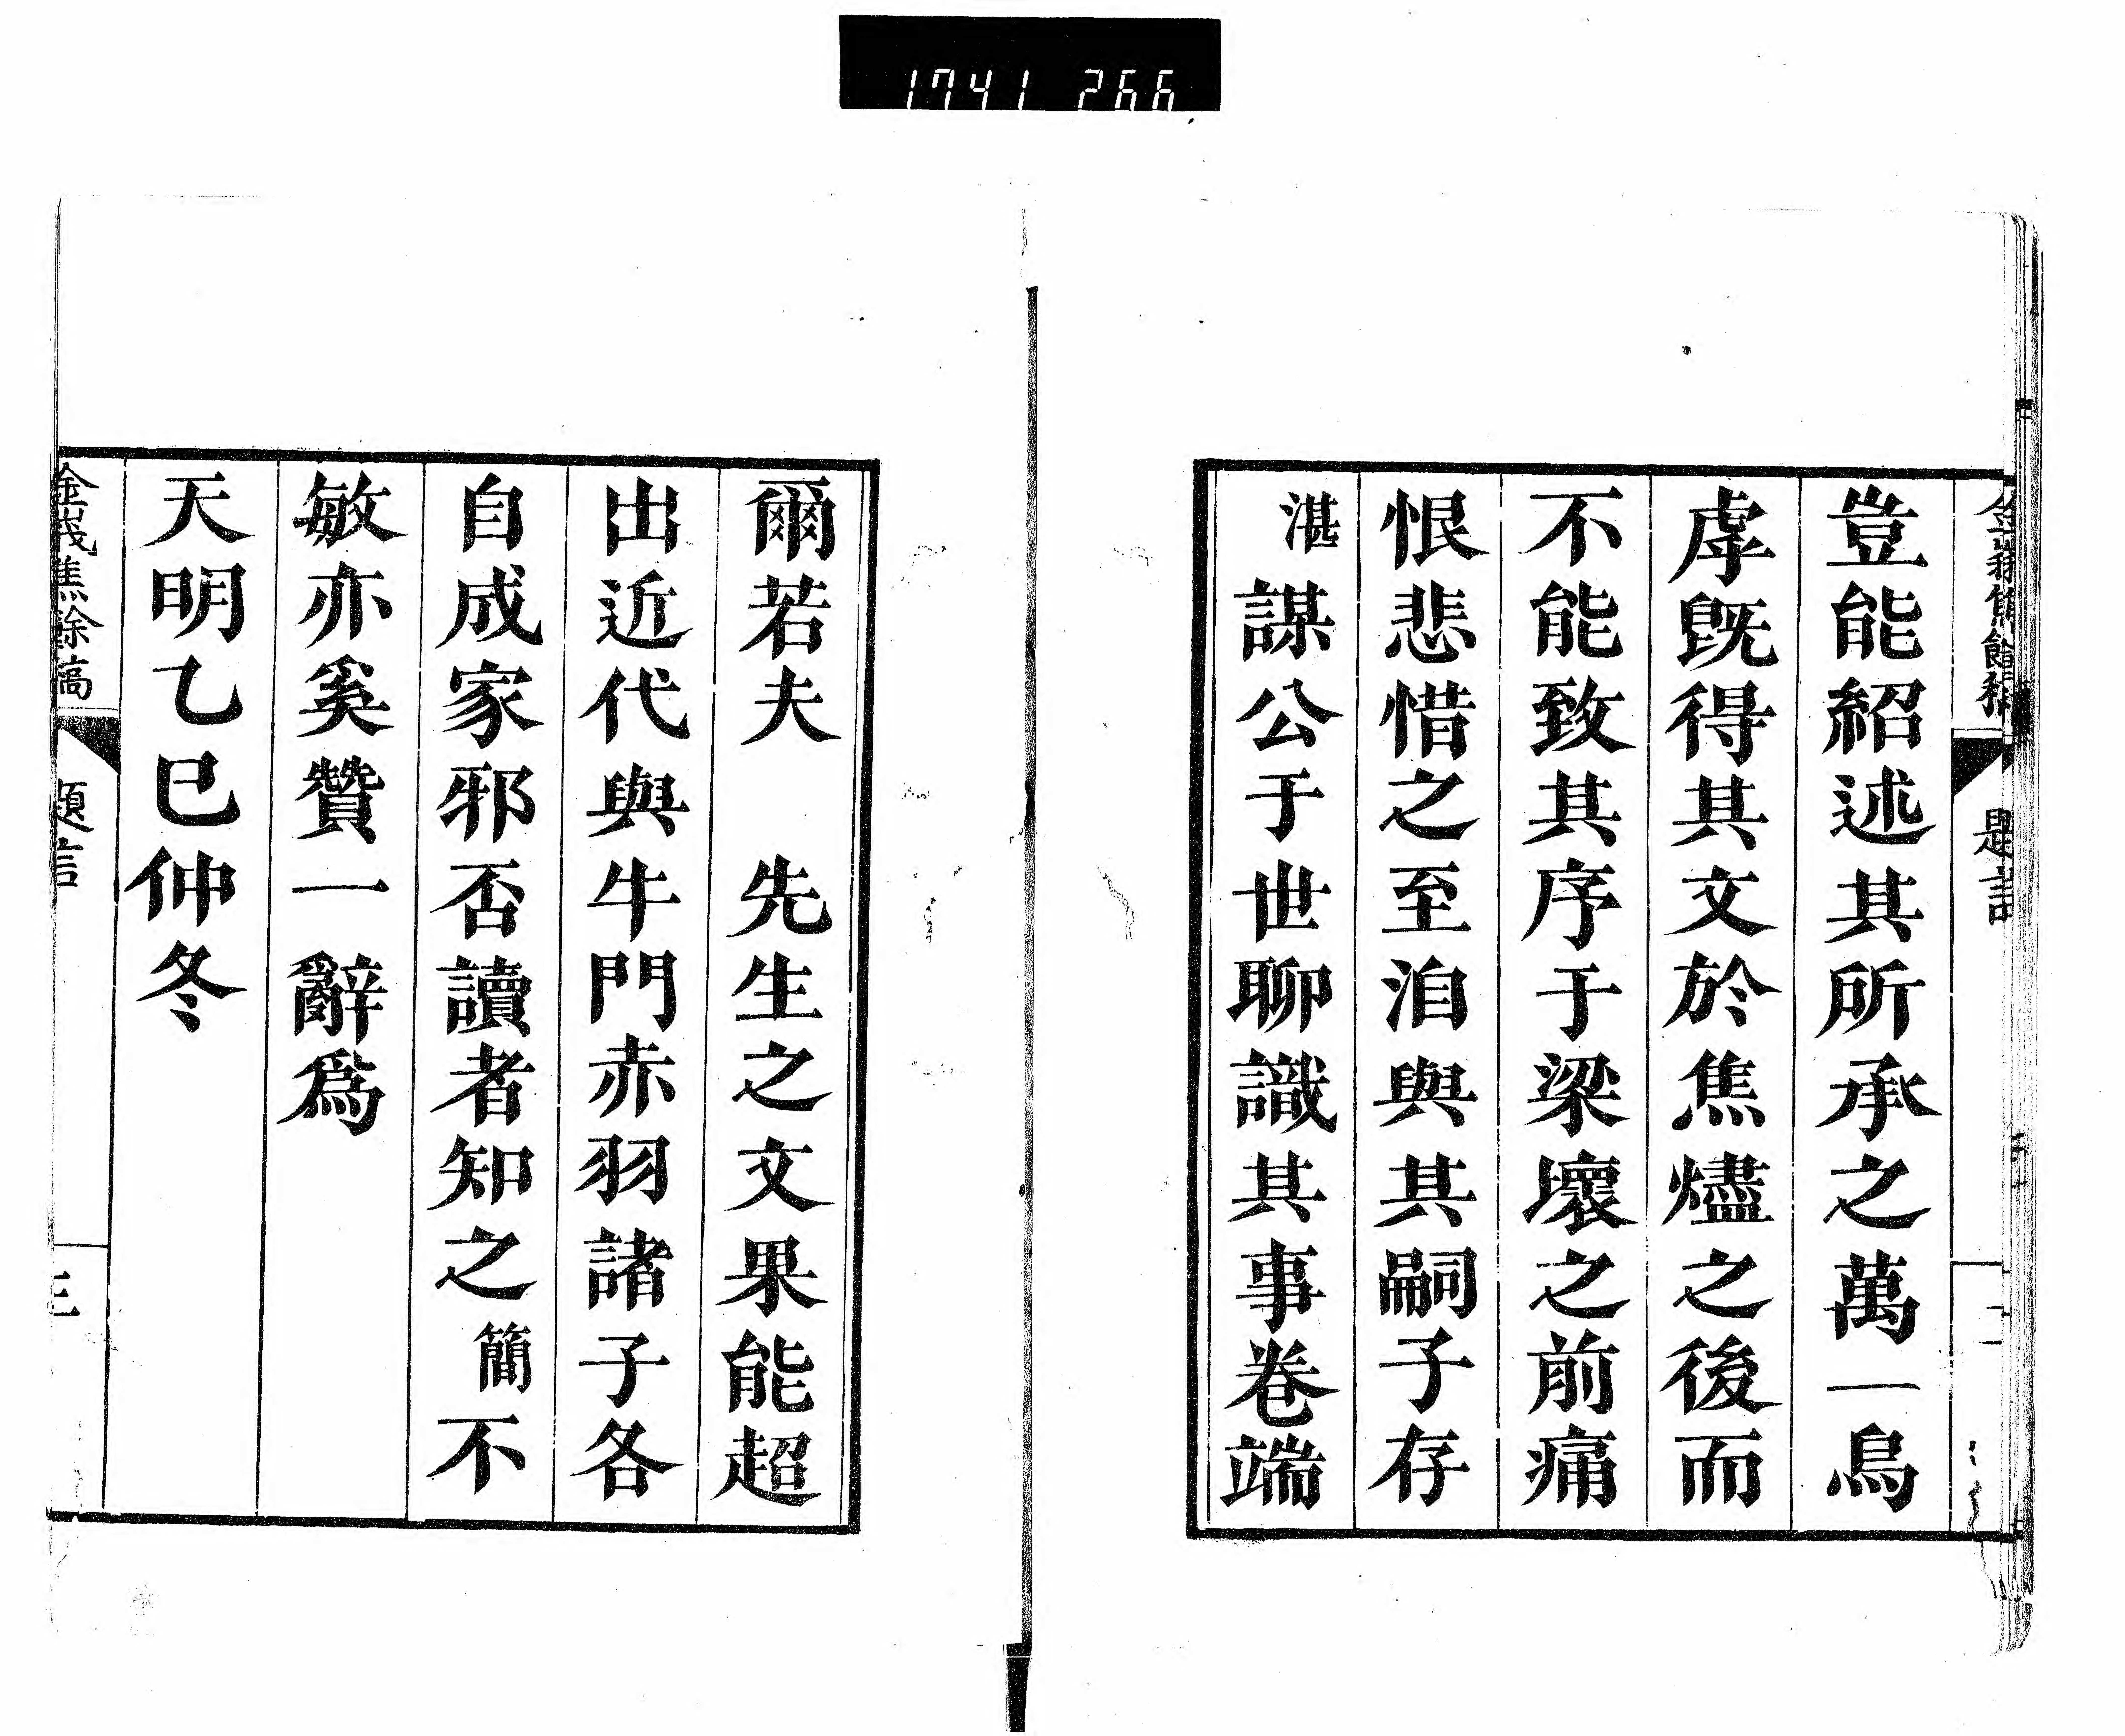 1741 266
豈能紹述其所承之萬一烏
虖既得其文於焦燼之後而
不能致其序于梁壞之前痛
恨悲惜之至洎與其嗣子存
湛謀公于世聊識其事卷端
爾若夫　先生之文果能超
出近代與牛門赤羽諸子各
自成家邪否讀者知之簡不
敏亦奚贊一辭爲
天明乙巳仲冬
金峩焦餘稿　題言　三